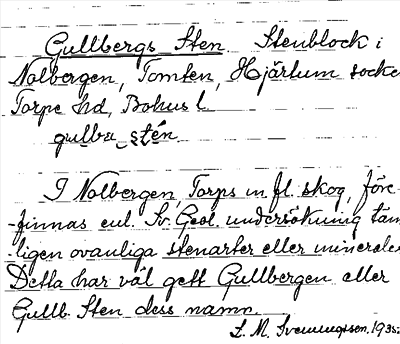 Gullbergs Sten. Stenblock i
Nolbergen, Tomten, Hjärtum socke
Torpe hd, Bohus l.
gulba stén.
I Nolbergen, Torps m.fl. skog, före-
-finnas enl. Sv. Geol. undersökning täm
-ligen ovanliga stenarter eller mineraler
Detta har väl gett Gullbergen eller
Gullb. Sten dess namn.
L. M. Svenungsson. 1935.